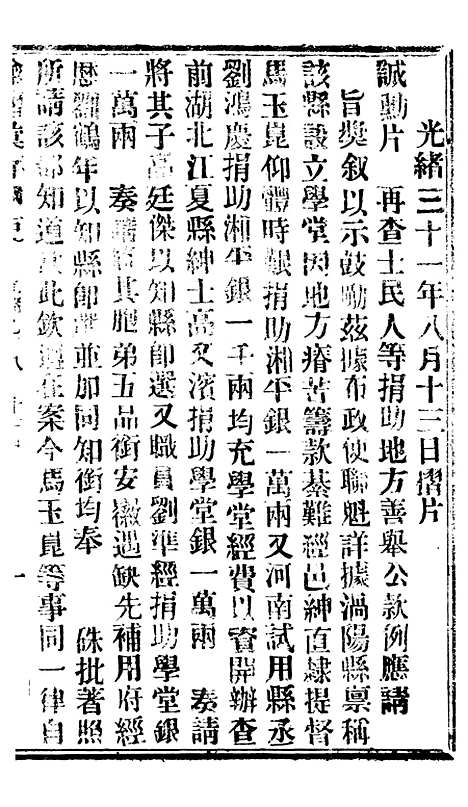 光緒三十一年八月十三日摺片
誠勳片 再查士民人等捐助地方善舉公款例應請
旨獎叙以示鼓勵茲據布政使聯魁詳據渦陽縣稟稱
該縣設立學堂因地方瘠苦籌款綦難經邑紳直隸提督
馬玉崑仰體時艱捐助湘平銀一萬兩又河南試用縣丞
劉鴻慶捐助湘平銀一千兩均充學堂經費以資開辦查
前湖北江夏縣紳士高又濱捐助學堂銀一萬兩 奏請
將其子高廷傑以知縣卽選又職員劉準經捐助學堂銀
一萬兩 奏請 其胞弟五品銜安徽遇缺先補用府經
歷劉鶴年以知縣卽選並加同知銜均奉 硃批著照
所請該部知道 此欽遵在案今馬玉崑等事同一律自